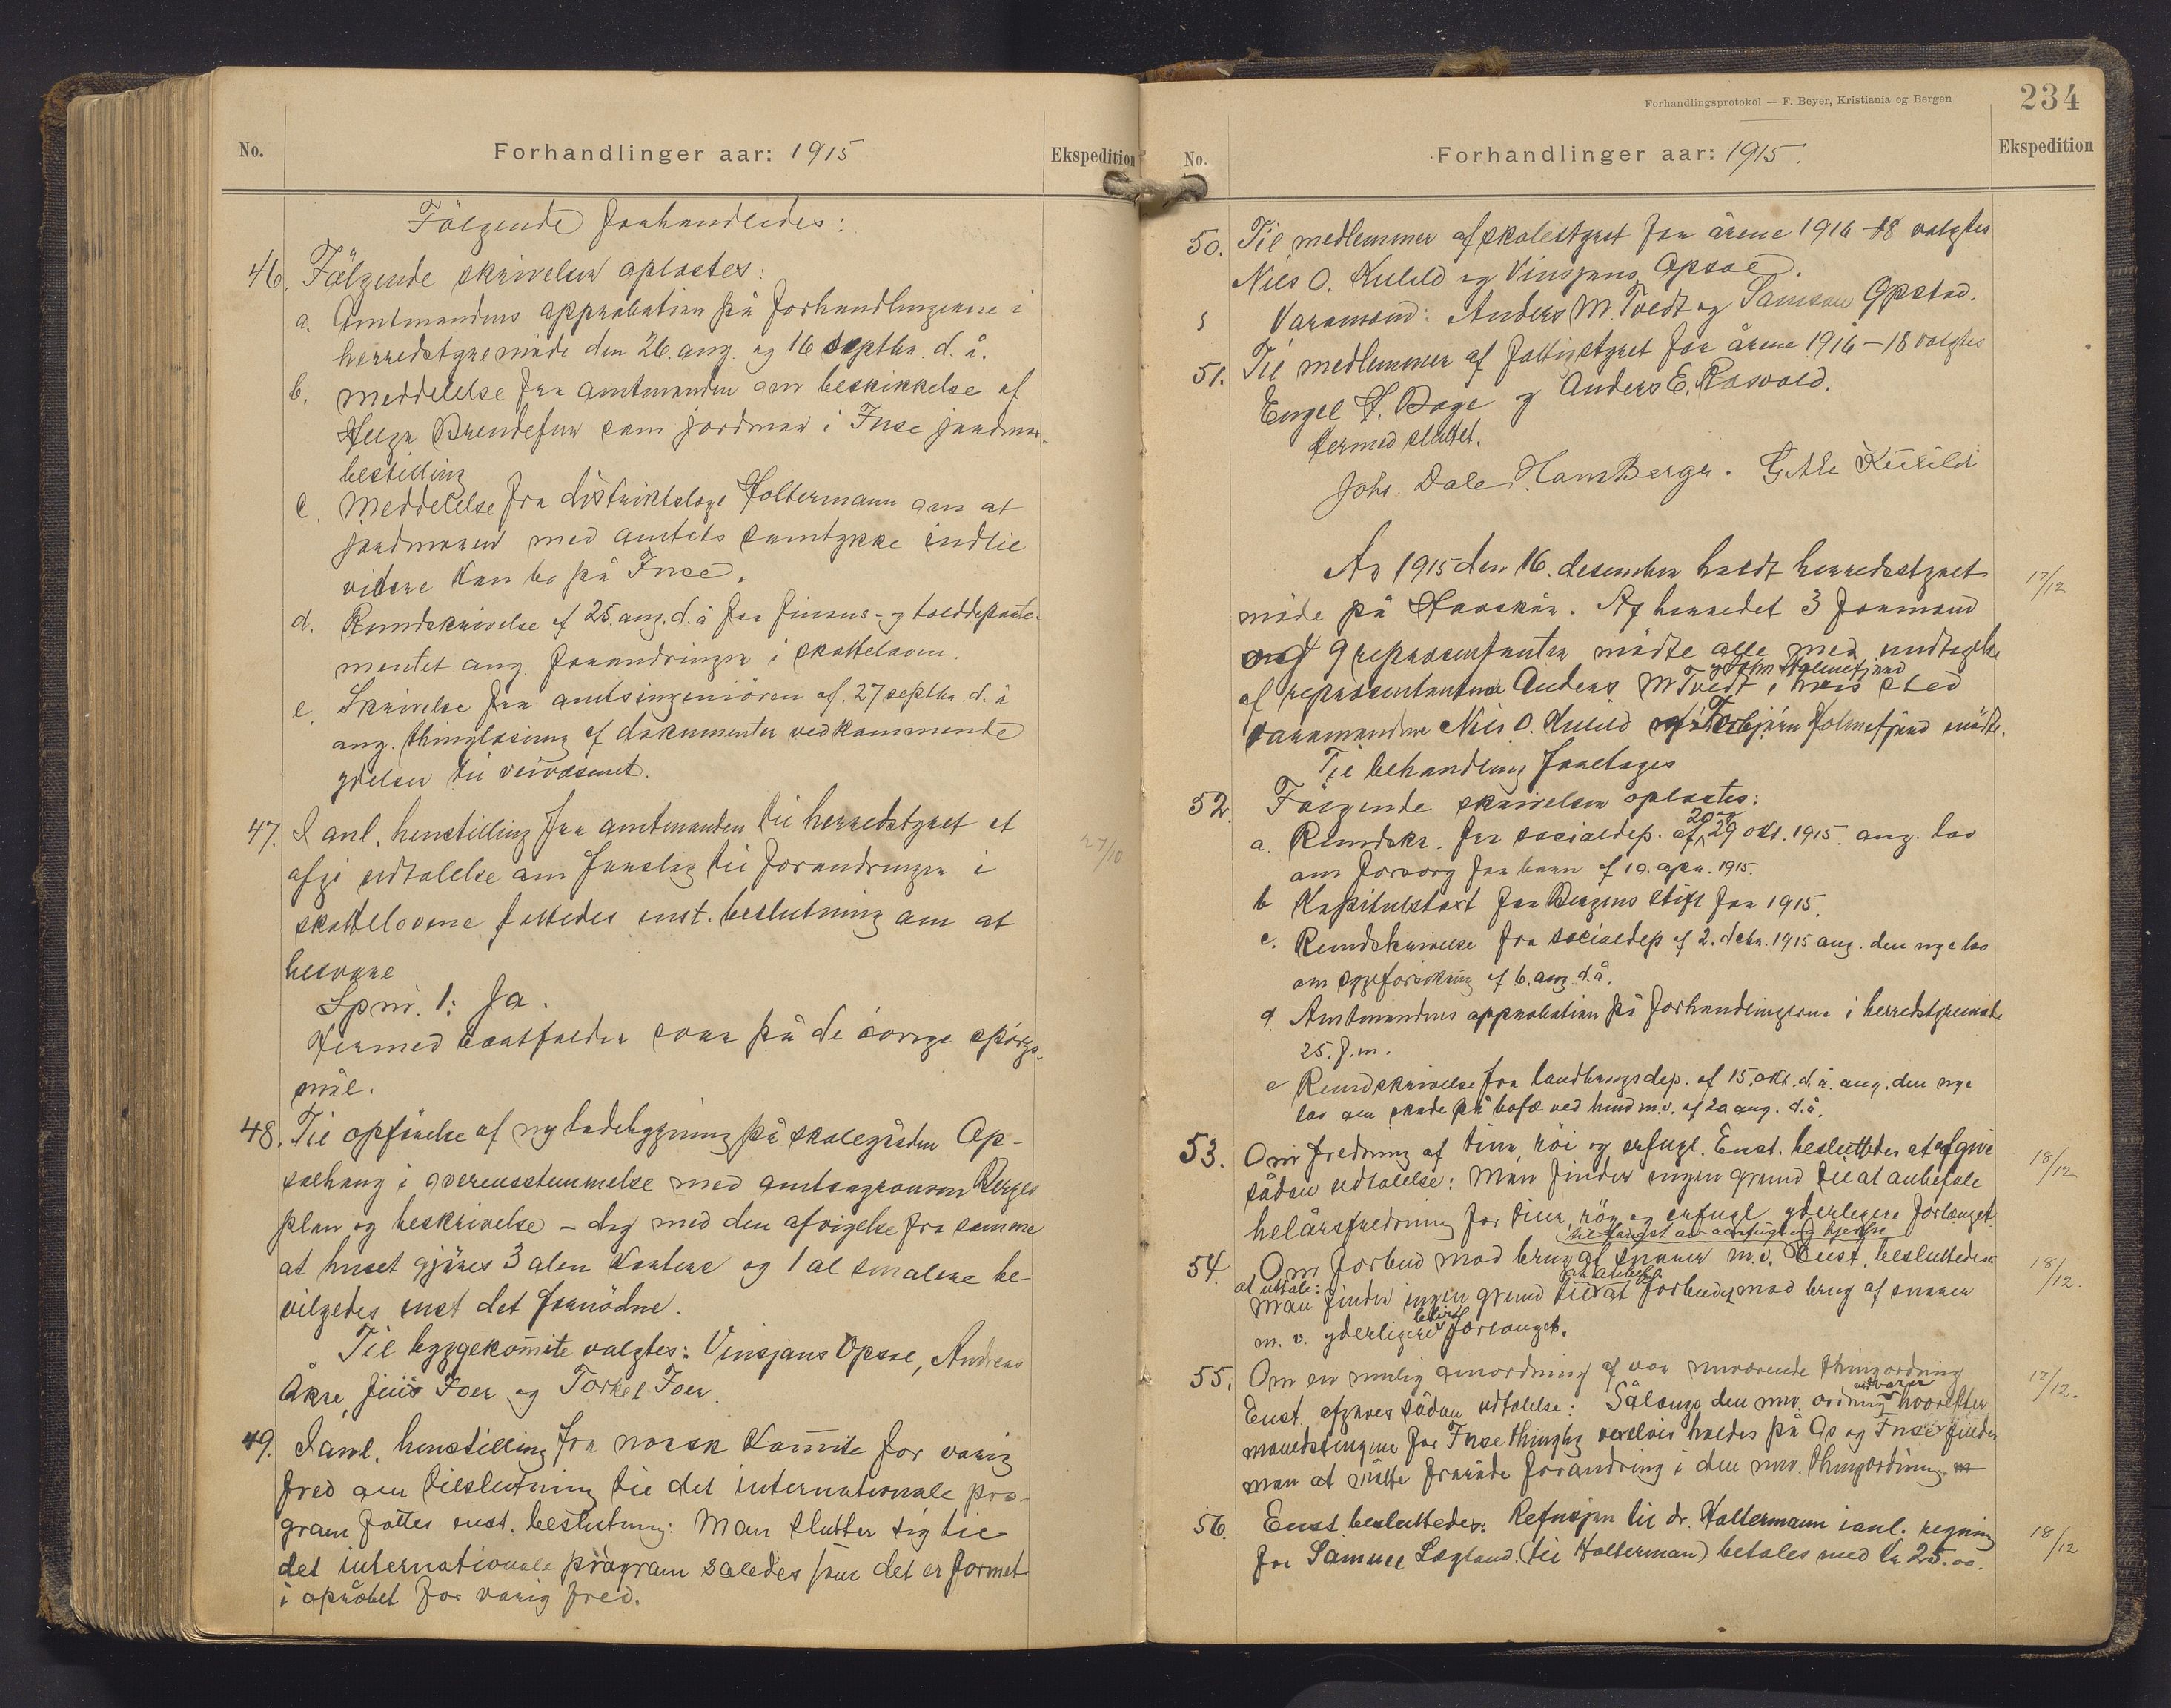 No.
Forhandlinger aar: 1915
Ekspedition
Følgende forhandledes:
46. Følgende skrivelser oplæstes:
a. Amtmandens approbation på forhandlingerne i
herredstyremøde den 26. aug. og 16 septbr. d. å.
b. Meddelelse fra amtmanden om beskikkelse af
Helga Brendefur som jordmor i Fuse jordmor-
bestilling
c. Meddelelse fra distriktslæge Holtermann om at
jordmoren med amtets samtykke indtil
videre kan bo på Fuse.
d. Rundskrivelse af 25. aug. d. å fra finans- og tolddeparte-
mentet ang. forandringer i skatteloven.
e. Skrivelse fra amtsingeniøren af. 27 septbr. d. å
ang. thinglæsning af dokumenter vedkommende
ydelser til veivæsenet.
47. I anl. henstilling fra amtmanden til herredstyret at
27/10
afgi udtalelse om forslag til forandringer i
skattelovene fattedes enst. beslutning om at
besvare
Spm. 1: Ja.
Hermed bortfalder svar på de øvrige spørgs-
mål.
48. Til opførelse af ny ladebygning på skolegården Op-
sælhaug i overensstemmelse med amtsagronom Berges
plan og beskrivelse – dog med den afvigelse fra samme
at huset gjøres 3 alen kortere og 1 al smalere be-
vilgedes enst det fornødne.
Til byggekomite valgtes: Vinsjans Opsae, Andreas
Åkre, Nils Foer og Torkel Foer.
49. I anl. henstilling fra norsk komite for varig
fred om tilslutning til det internationale pro-
gram fattes enst. beslutning: Man slutter sig til
det internationale program således som det er formet
i opråbet for varig fred.
Forhandlingsprotokol — F. Beyer, Kristiania og Bergen
234
No.
Forhandlinger aar: 1915.
Ekspedition
50. Til medlemmer af skolestyret for årene 1916–18 valgtes
Nils O. Kulild og Vinsjans Opsae.
Varamænd: Anders M. Tvedt og Samson Opstad.
51. Til medlemmer af fattigstyret for årene 1916–18 valgtes
Engel H. Bage og Anders E. Røsvold.
Hermed sluttet.
Johs. Dale Hans Berge. Kulild
År 1915 den 16. desember holdt herredsstyret
17/12
møde på Havskår. Af herredet 3 formænd
og 9 repræsentanter mødte alle med undtagelse
og John Holmefjord
af repræsentanterne Anders M Tvedt, i hvis sted
varamændene Nils O. Kulild og Torbjørn Holmefjord mødte.
Til behandling foretages
52. Følgende skrivelser oplæstes:
20 og
a. Rundskr. fra socialdep. af 29 okt. 1915 ang. lov
om forsorg for barn af 10. apr. 1915.
b Kapitulstaxt for Bergens stift for 1915.
c. Rundskrivelse fra socialdep af 2. debr. 1915 ang. den nye lov
om sygeforsikring af 6. aug. d. å.
d Amtmandens approbation på forhandlingerne i herredstyremøde
25. f. m.
e Rundskrivelse fra landbrugsdep. af 15. okt. d. å. ang. den nye
lov om skade på bofæ ved hund m.v. af 20 aug. d. å.
53. Om fredning af tiur, røi og orfugl. Enst. besluttedes at afgive
18/12
sådan udtalelse: Man finder ingen grund til at anbefale
helårsfredning for tiur, røy og orfugl yderligere forlænget.
til fangst av aarfugl og hjerpe
54. Om forbud mod brug af snarer m.v. Enst. besluttedes
18/12.
at uttale:
Man finder ingen grund til at forbudet mod brug af snarer
blir
m. v. yderligere forlænget.
55. Om en mulig omordning af vor nuværende thingordning
17/12.
vedvarer
Enst. afgaves sådan udtalelse: Sålænge den nuv. ordning hvorefter
månedstingene for Fuse thinglag vexelvis holdes på Os og Fuse finder
man at måtte fraråde forandring i den nuv. thingordning.
56. Enst. besluttedes: Refusjon til dr. Holtermann i anl. regning
18/12
for Samuel Løgland (til Holterman) betales med kr 25.00.